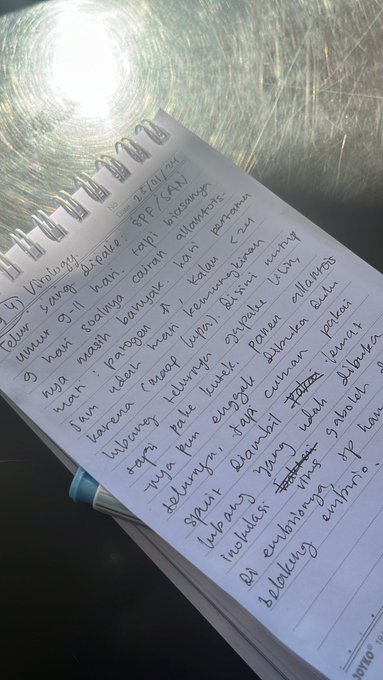 No
Date 25/01/24
Virology
Telur yang dipake: SPF/SAN
umur 9-11 hari. tapi biasanya
9 hari soalnya cairan allantois-
nya masih banyak. hari pertama
mati: patogen ↑, kalau < 24
jam udah mati kemungkinan
karena (maap lupa). Disini nutup
lubang telurnya gapake lilin,
tapi pake kutek. panen allantois
nya pun enggak dibuka dulu
telurnya. tapi cuman pakai
spuit diambil lewat
lubang yang udah dibuka
inokulasi virus gaboleh
Di embrionya, tp
Belakang embrio.
JOYKO